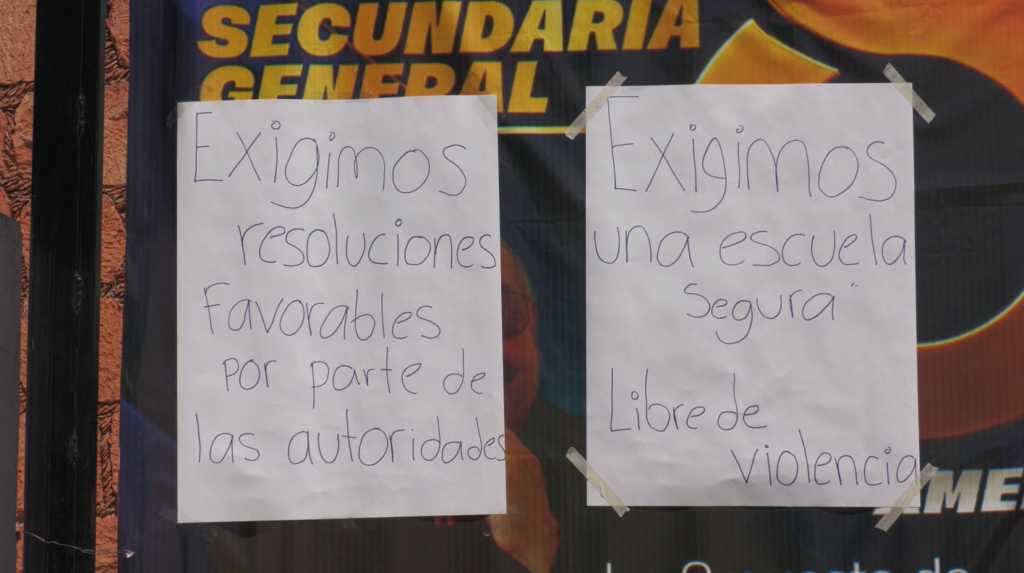 SECUNDARIA
GENERAL
Exigimos
resoluciones
Favorables
por parte de
las autoridades
Exigimos
una escuela
segura"
Libre de
violencia